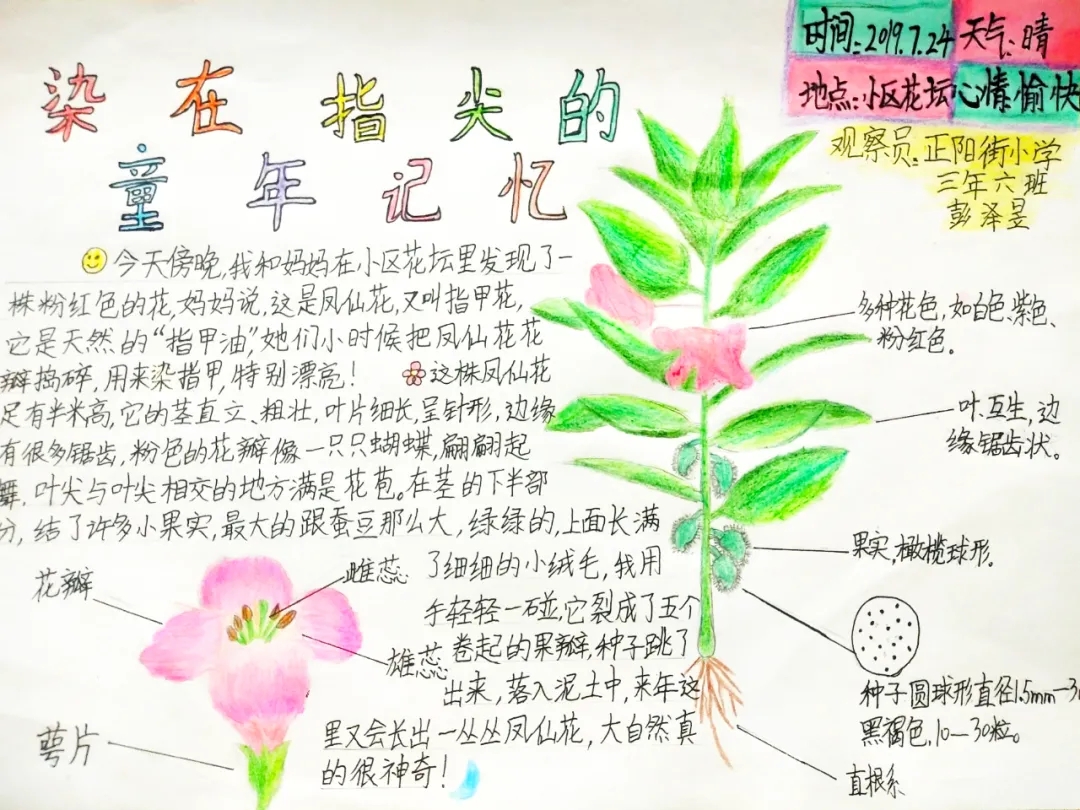 染在指尖的
童年记忆
时间:2019.7.24 天气:晴
地点:小区花坛 心情:愉快
观察员:正阳街小学
三年六班
彭泽昱
今天傍晚,我和妈妈在小区花坛里发现了一
株粉红色的花,妈妈说,这是凤仙花,又叫指甲花,
它是天然的“指甲油”,她们小时候把凤仙花花
瓣捣碎,用来染指甲,特别漂亮! 这株凤仙花
足有半米高,它的茎直立、粗壮,叶片细长,呈针形,边缘
有很多锯齿,粉色的花瓣像一只只蝴蝶,翩翩起
舞,叶尖与叶尖相交的地方满是花苞。在茎的下半部
分,结了许多小果实,最大的跟蚕豆那么大,绿绿的,上面长满
了细细的小绒毛,我用
手轻轻一碰,它裂成了五个
卷起的果瓣,种子跳了
出来,落入泥土中,来年这
里又会长出一丛丛凤仙花,大自然真
的很神奇!
花瓣
雌蕊
雄蕊
萼片
多种花色,如白色、紫色、
粉红色。
叶,互生,边
缘锯齿状。
果实,橄榄球形。
种子圆球形直径1.5mm—3
黑褐色,10—30粒。
直根系